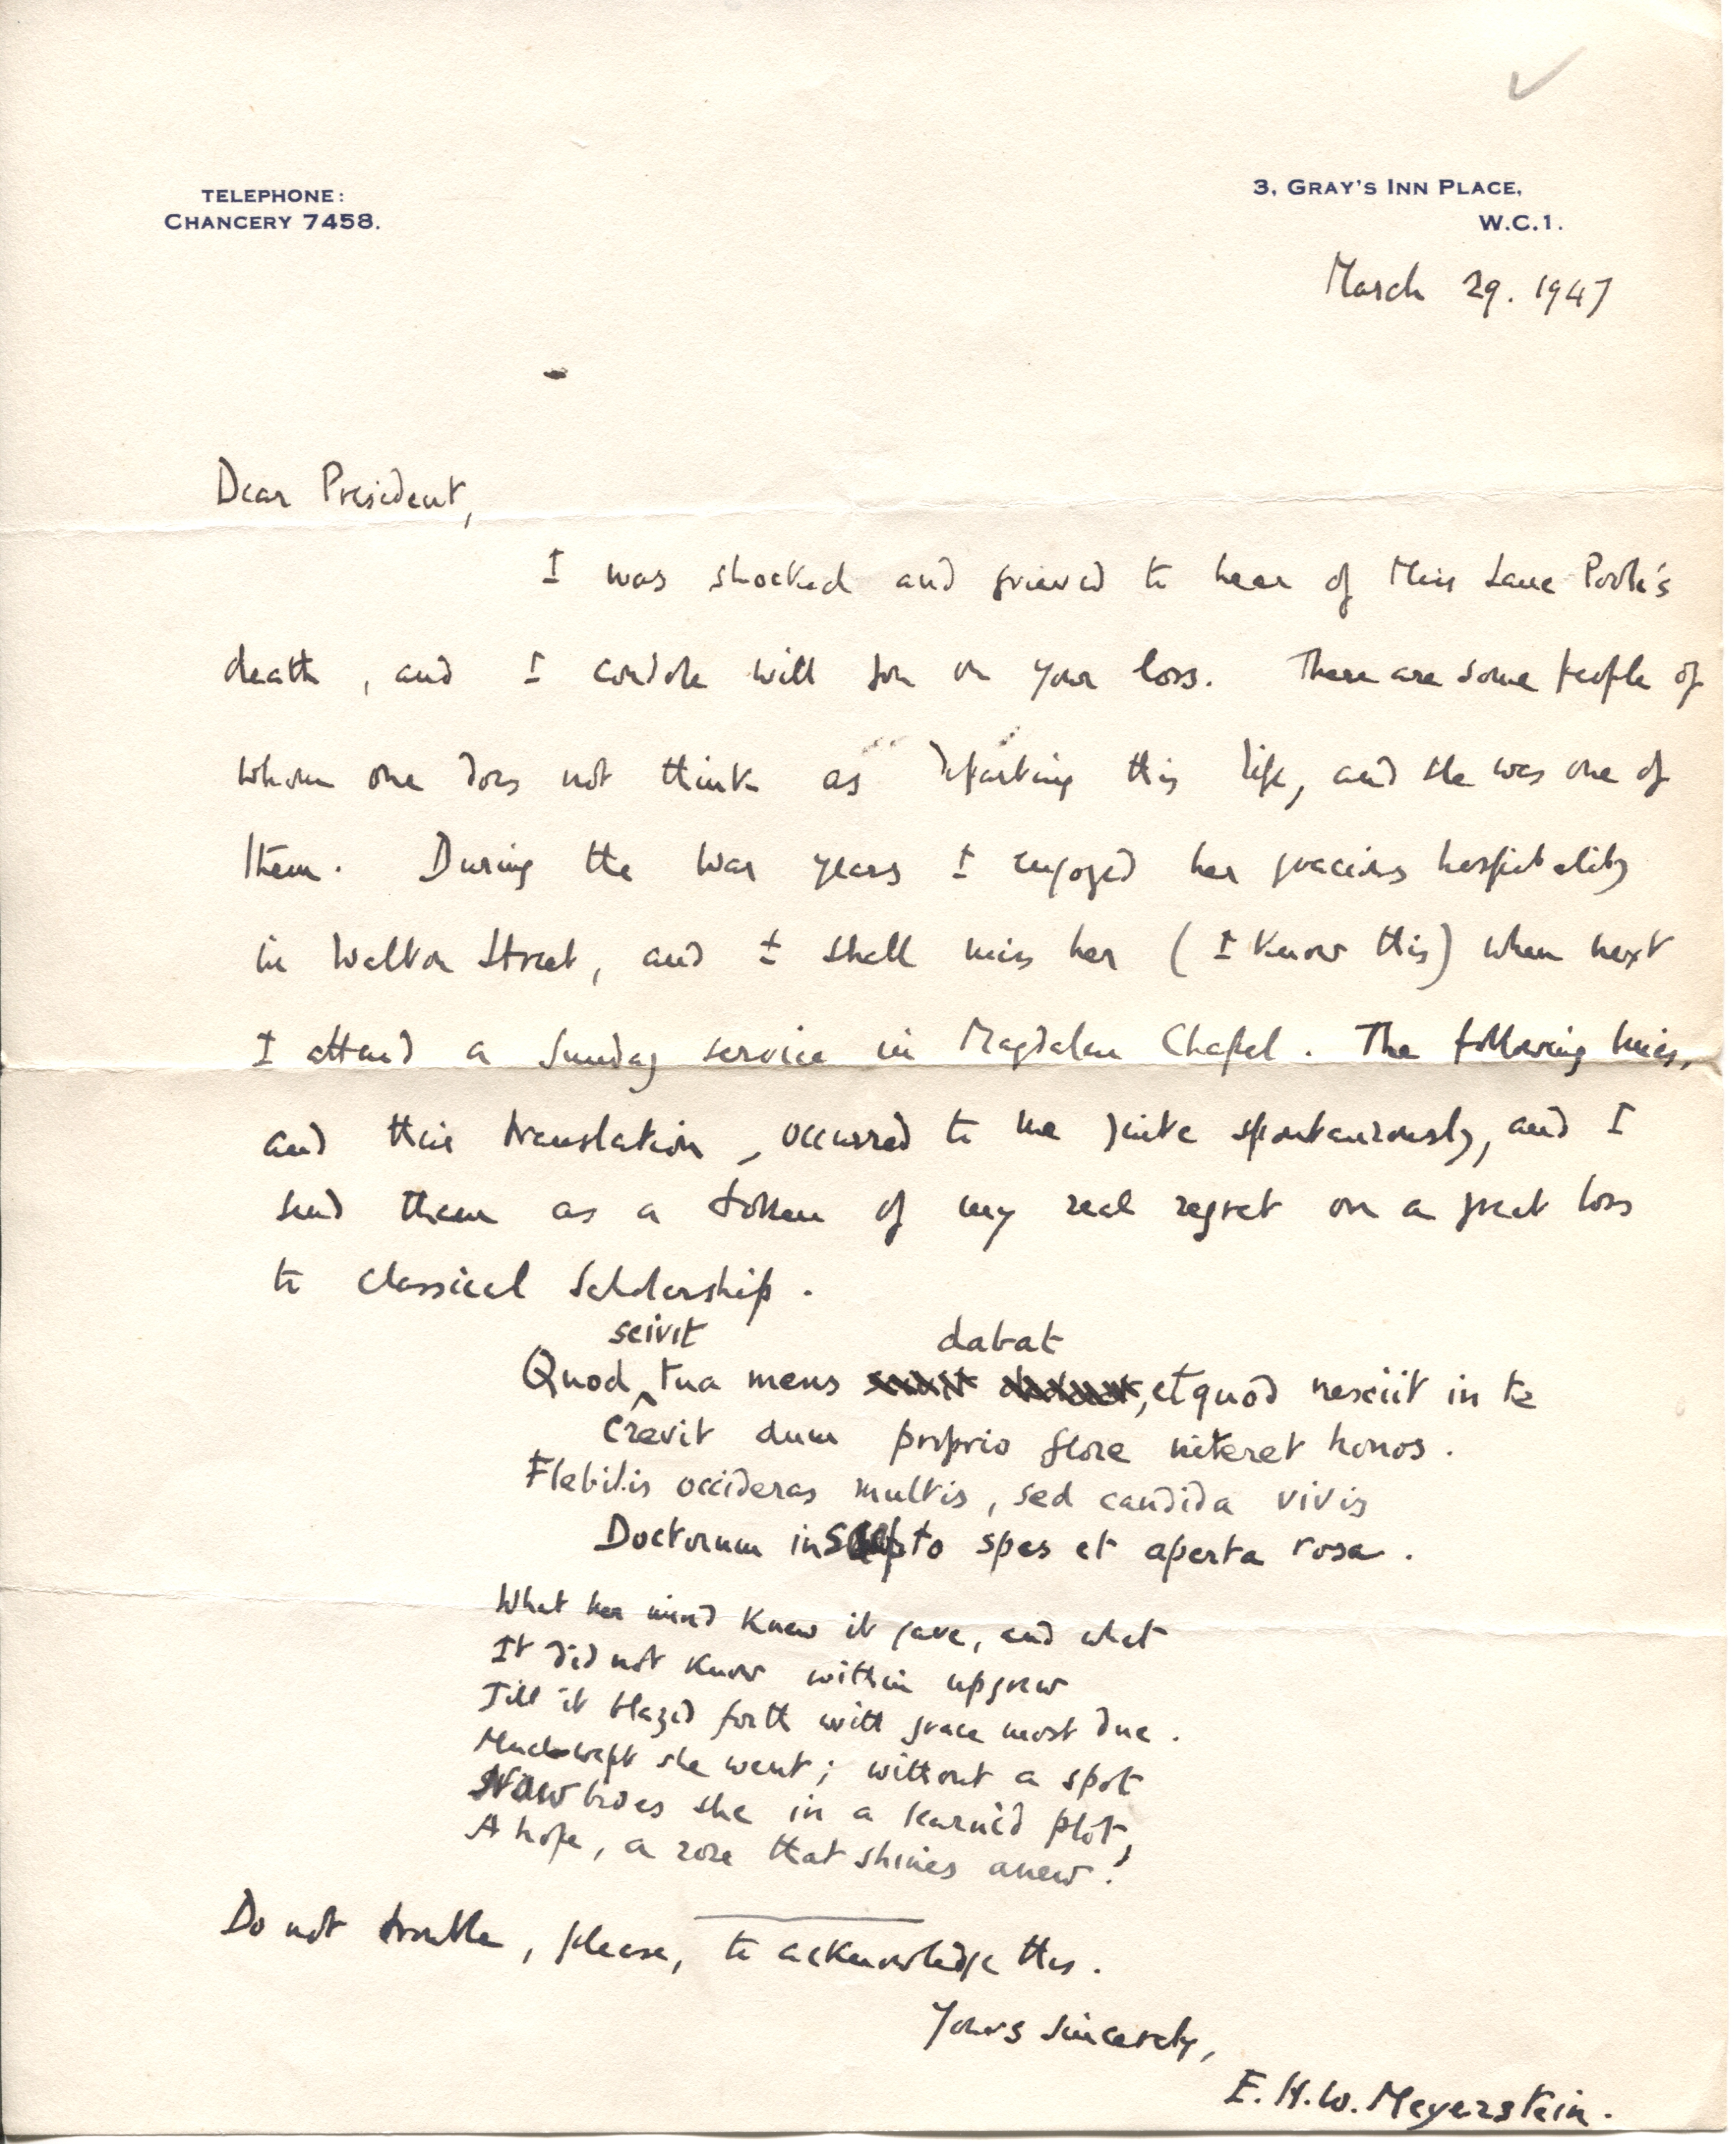 TELEPHONE:
CHANCERY 7458.
3, GRAY'S INN PLACE,
W.C.1.
March 29. 1947
Dear President,
I was shocked and grieved to hear of Miss Lane Poole's
death, and I condole with you on your loss. There are some people of
whom one does not think as departing this life, and she was one of
them. During the war years I enjoyed her gracious hospitality
in Walton Street, and I shall miss her (I know this) when next
I attend a Sunday service in Magdalen Chapel. The following lines,
and their translation, occurred to me quite spontaneously, and I
send them as a token of my real regret on a great loss
to classical scholarship.
scivit dabat
Quod tua mens, et quod nesciit in te
Crevit dum proprio flore niteret honos.
Flebilis occideras multis, sed candida vivis
Doctorum in to spes et aperta rosa.
What her mind knew it gave, and what
It did not know within upgrew
Till it blazed forth with grace most due.
Much-wept she went; without a spot
Now lives she in a learnèd plot,
A hope, a rose that shines anew!
Do not trouble, please, to acknowledge this.
Yours sincerely,
E.H.W. Meyerstein.